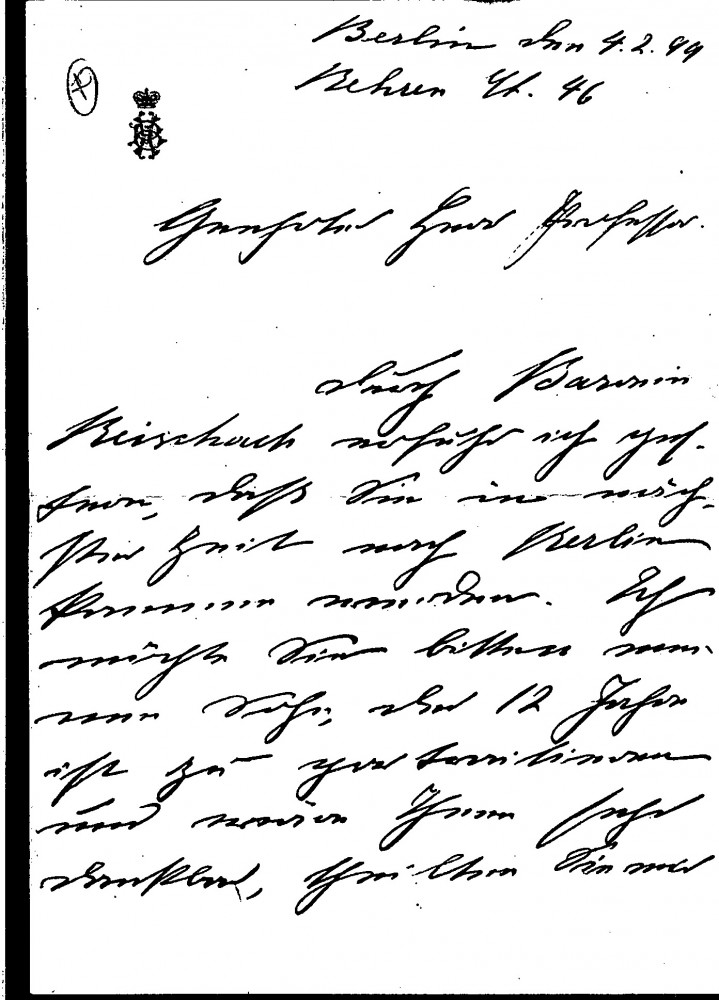 Berlin den 4.2.99
Behren St. 46
Geehrter Herr Professor.
durch Baronin
Reischach erfuhr ich ges-
tern, daß Sie in näch-
ster Zeit nach Berlin
kommen werden. Ich
möchte Sie bitten mei-
nen Sohn, der 12 Jahre
ist zu portraitieren
und wäre Ihnen sehr
dankbar, theilten Sie mir